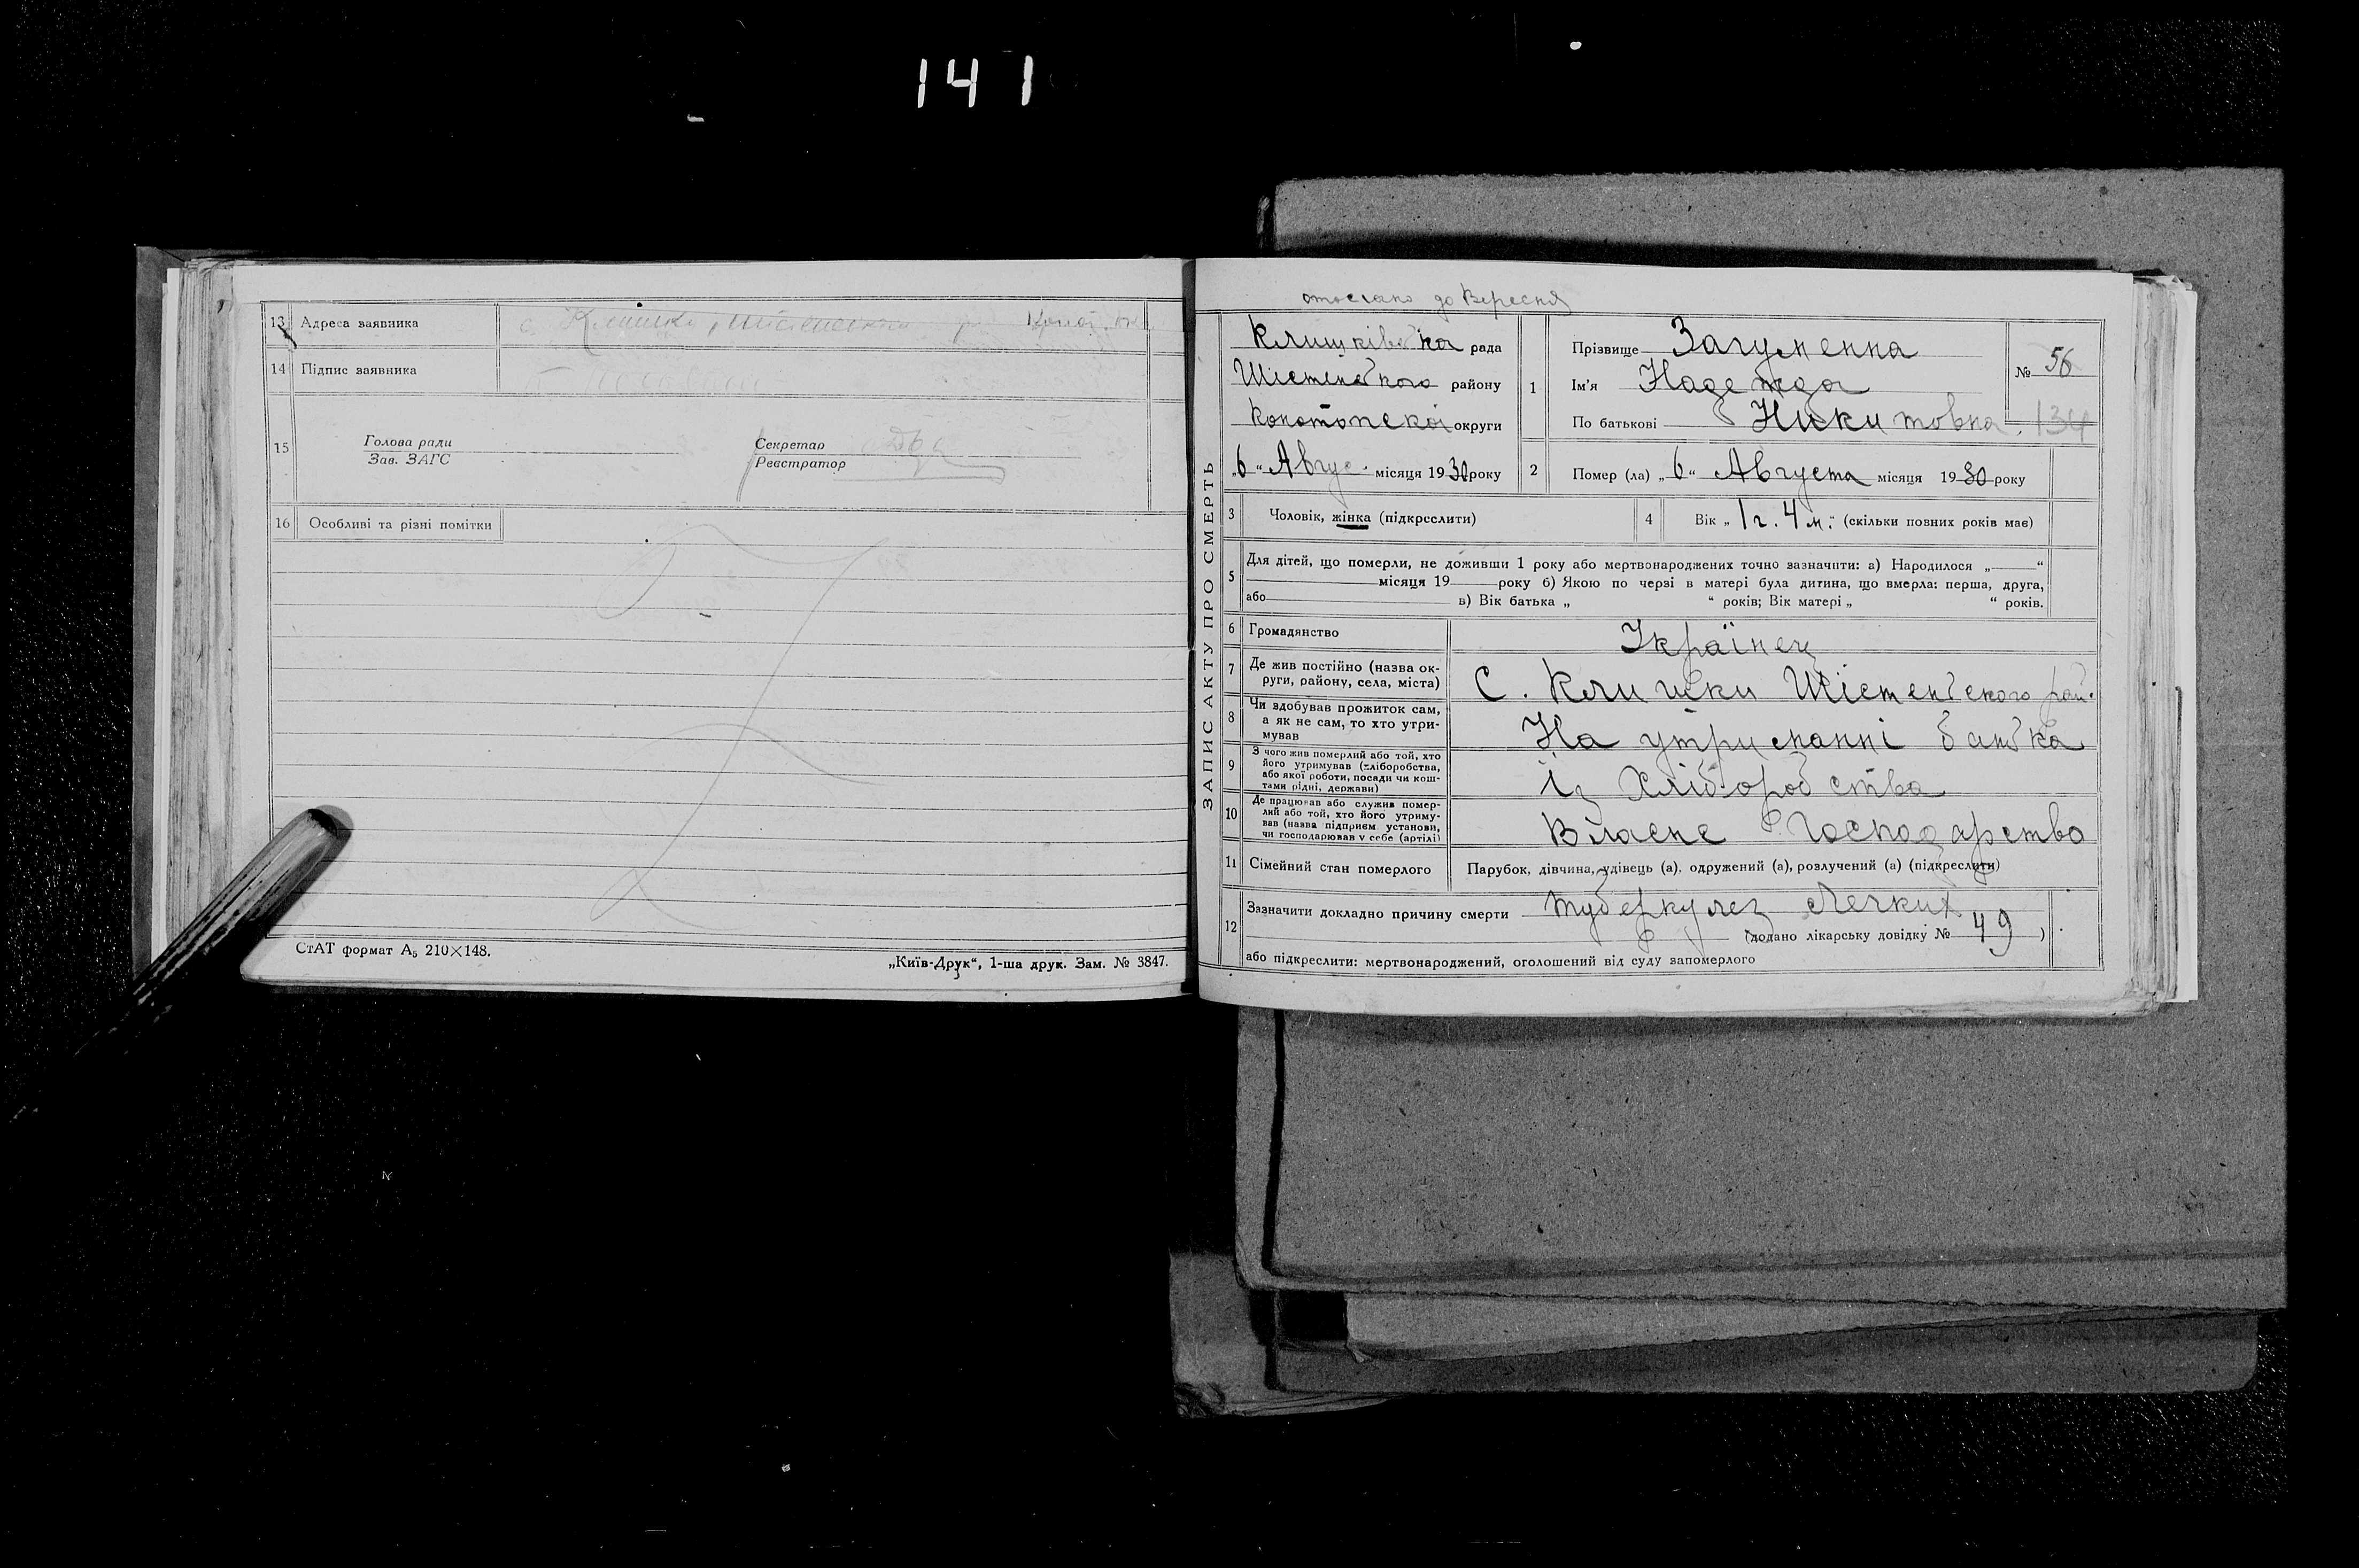 141
13 Адреса заявника
14 Підпис заявника
15 Голова ради
Зав. ЗАГС
Секретар
Реєстратор
16 Особливі та різні помітки
СтАТ формат А5 210×148.
„Київ-Друк“, 1-ша друк. Зам. № 3847.
отослано до Вересня
ЗАПИС АКТУ ПРО СМЕРТЬ
Клишківська рада
Шістенського району
Конотопскої округи
„6“ Авгус. місяця 1930 року
1 Прізвище Загуменна
Ім'я Надежда
По батькові Никитовна
№ 56
134
2 Помер (ла) „6“ Августа місяця 1930 року
3 Чоловік, жінка (підкреслити)
4 Вік „1 г. 4 м.“ (скільки повних років має)
5 Для дітей, що померли, не доживши 1 року або мертвонароджених точно зазначити: а) Народилося „ “
місяця 19 року б) Якою по черзі в матері була дитина, що вмерла: перша, друга,
або в) Вік батька „ “ років; Вік матері „ “ років.
6 Громадянство Українец
7 Де жив постійно (назва ок-
руги, району, села, міста) С. Клишки Шістенського рай.
8 Чи здобував прожиток сам,
а як не сам, то хто утри-
мував На утриманні батька
9 З чого жив померлий або той, хто
його утримував (хліборобства,
або якої роботи, посади чи кош-
тами рідні, держави) Із Хліборобства
10 Де працював або служив помер-
лий або той, хто його утриму-
вав (назва підприєм установи,
чи господарював у себе (артілі) Власне Господарство
11 Сімейний стан померлого Парубок, дівчина, удівець (а), одружений (а), розлучений (а) (підкреслити)
12 Зазначити докладно причину смерти туберкулез Легких
(додано лікарську довідку № 49)
або підкреслити: мертвонароджений, оголошений від суду запомерлого